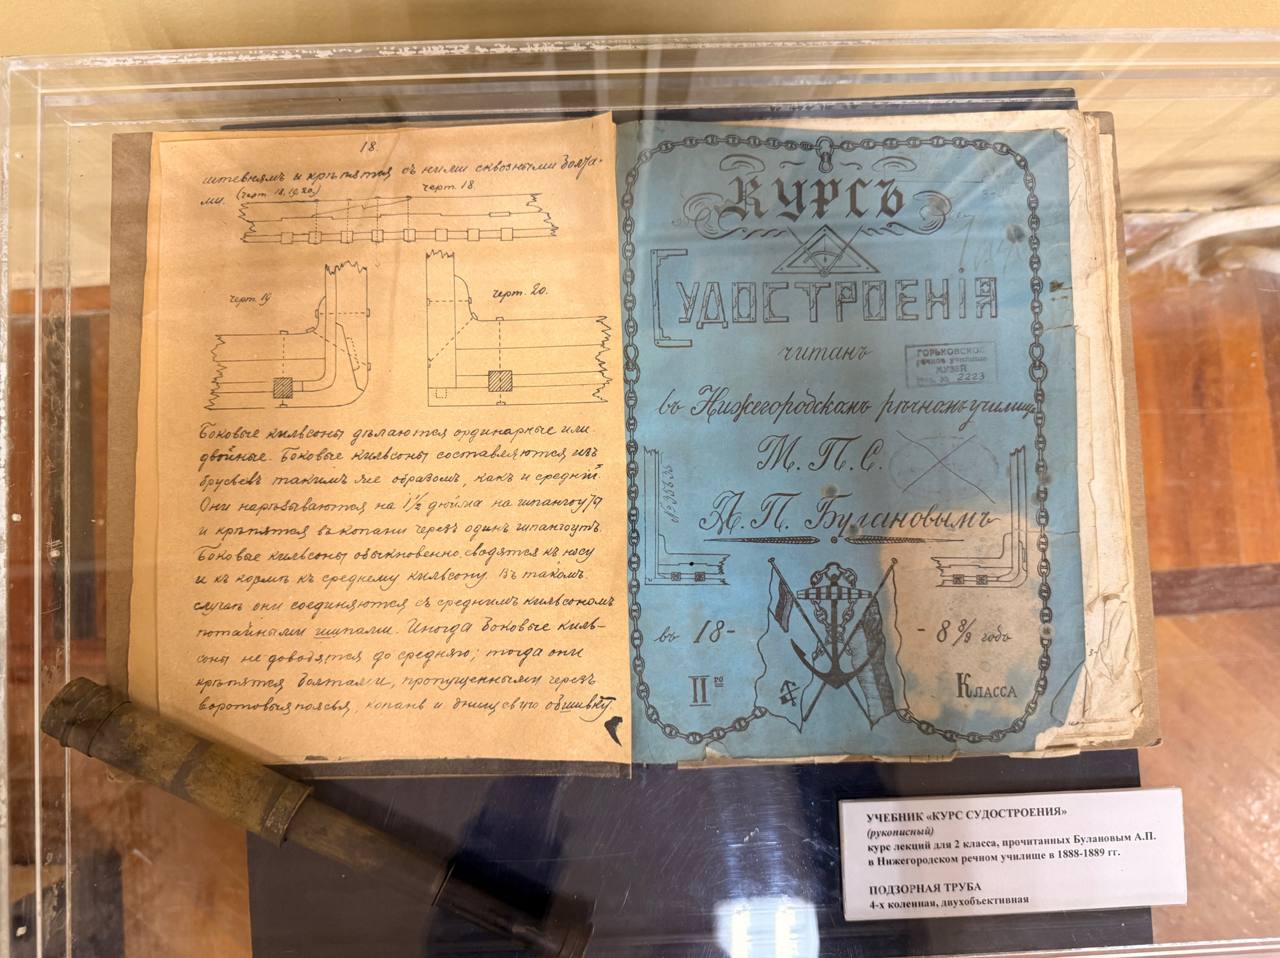 18.
штевнямъ и крѣпятся съ ними сквозными болта-
ми. (черт. 18, 19, 20)
черт. 18
черт. 19
черт. 20.
Боковые кильсоны дѣлаются ординарные или
двойные. Боковые кильсоны составляются изъ
брусьевъ такимъ же образомъ, какъ и средній.
Они нарѣзываются на 1½ дюйма на шпангоуты
и крѣпятся въ копани черезъ одинъ шпангоутъ.
Боковые кильсоны обыкновенно сводятся къ носу
и къ кормѣ къ среднему кильсону. Въ такомъ
случаѣ они соединяются съ среднимъ кильсономъ
потайными шипами. Иногда боковые киль-
соны не доводятся до средняго; тогда они
крѣпятся болтами, пропущенными черезъ
воротовыя поясья, копань и днищевую обшивку.
КУРСЪ
СУДОСТРОЕНІЯ
читанъ
ГОРЬКОВСКОЕ
речное училище
МУЗЕЙ
Инв. № 2223
въ Нижегородскомъ рѣчномъ училищѣ
М. П. С.
А. П. Булановымъ
въ 18- - 8 8/9 годъ
II го Класса
УЧЕБНИК «КУРС СУДОСТРОЕНИЯ»
(рукописный)
курс лекций для 2 класса, прочитанных Булановым А.П.
в Нижегородском речном училище в 1888-1889 гг.
ПОДЗОРНАЯ ТРУБА
4-х коленная, двухобъективная